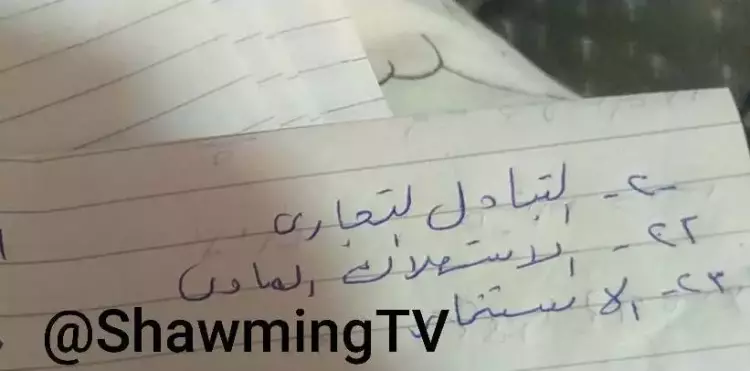 ٢٠- التبادل لتجارى
٢٢- الاستهلاك المادى
٢٣- الاستثمار
@ShawmingTV